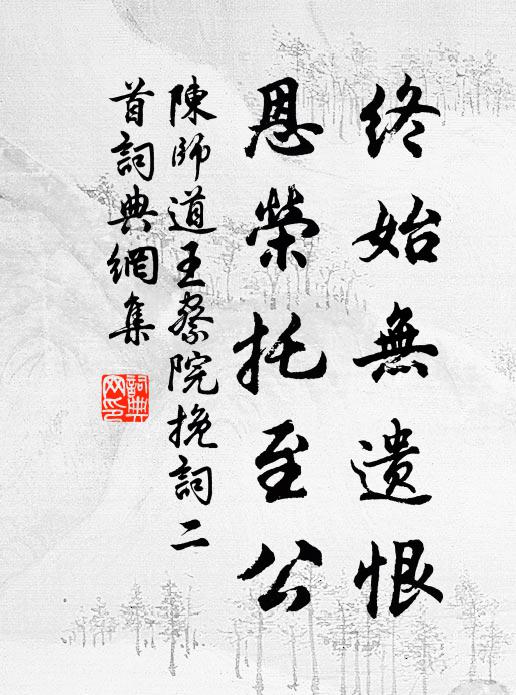 終始無遺恨
恩榮托至公
陳師道王察院挽詞二
首詞典網集
詞典
网印